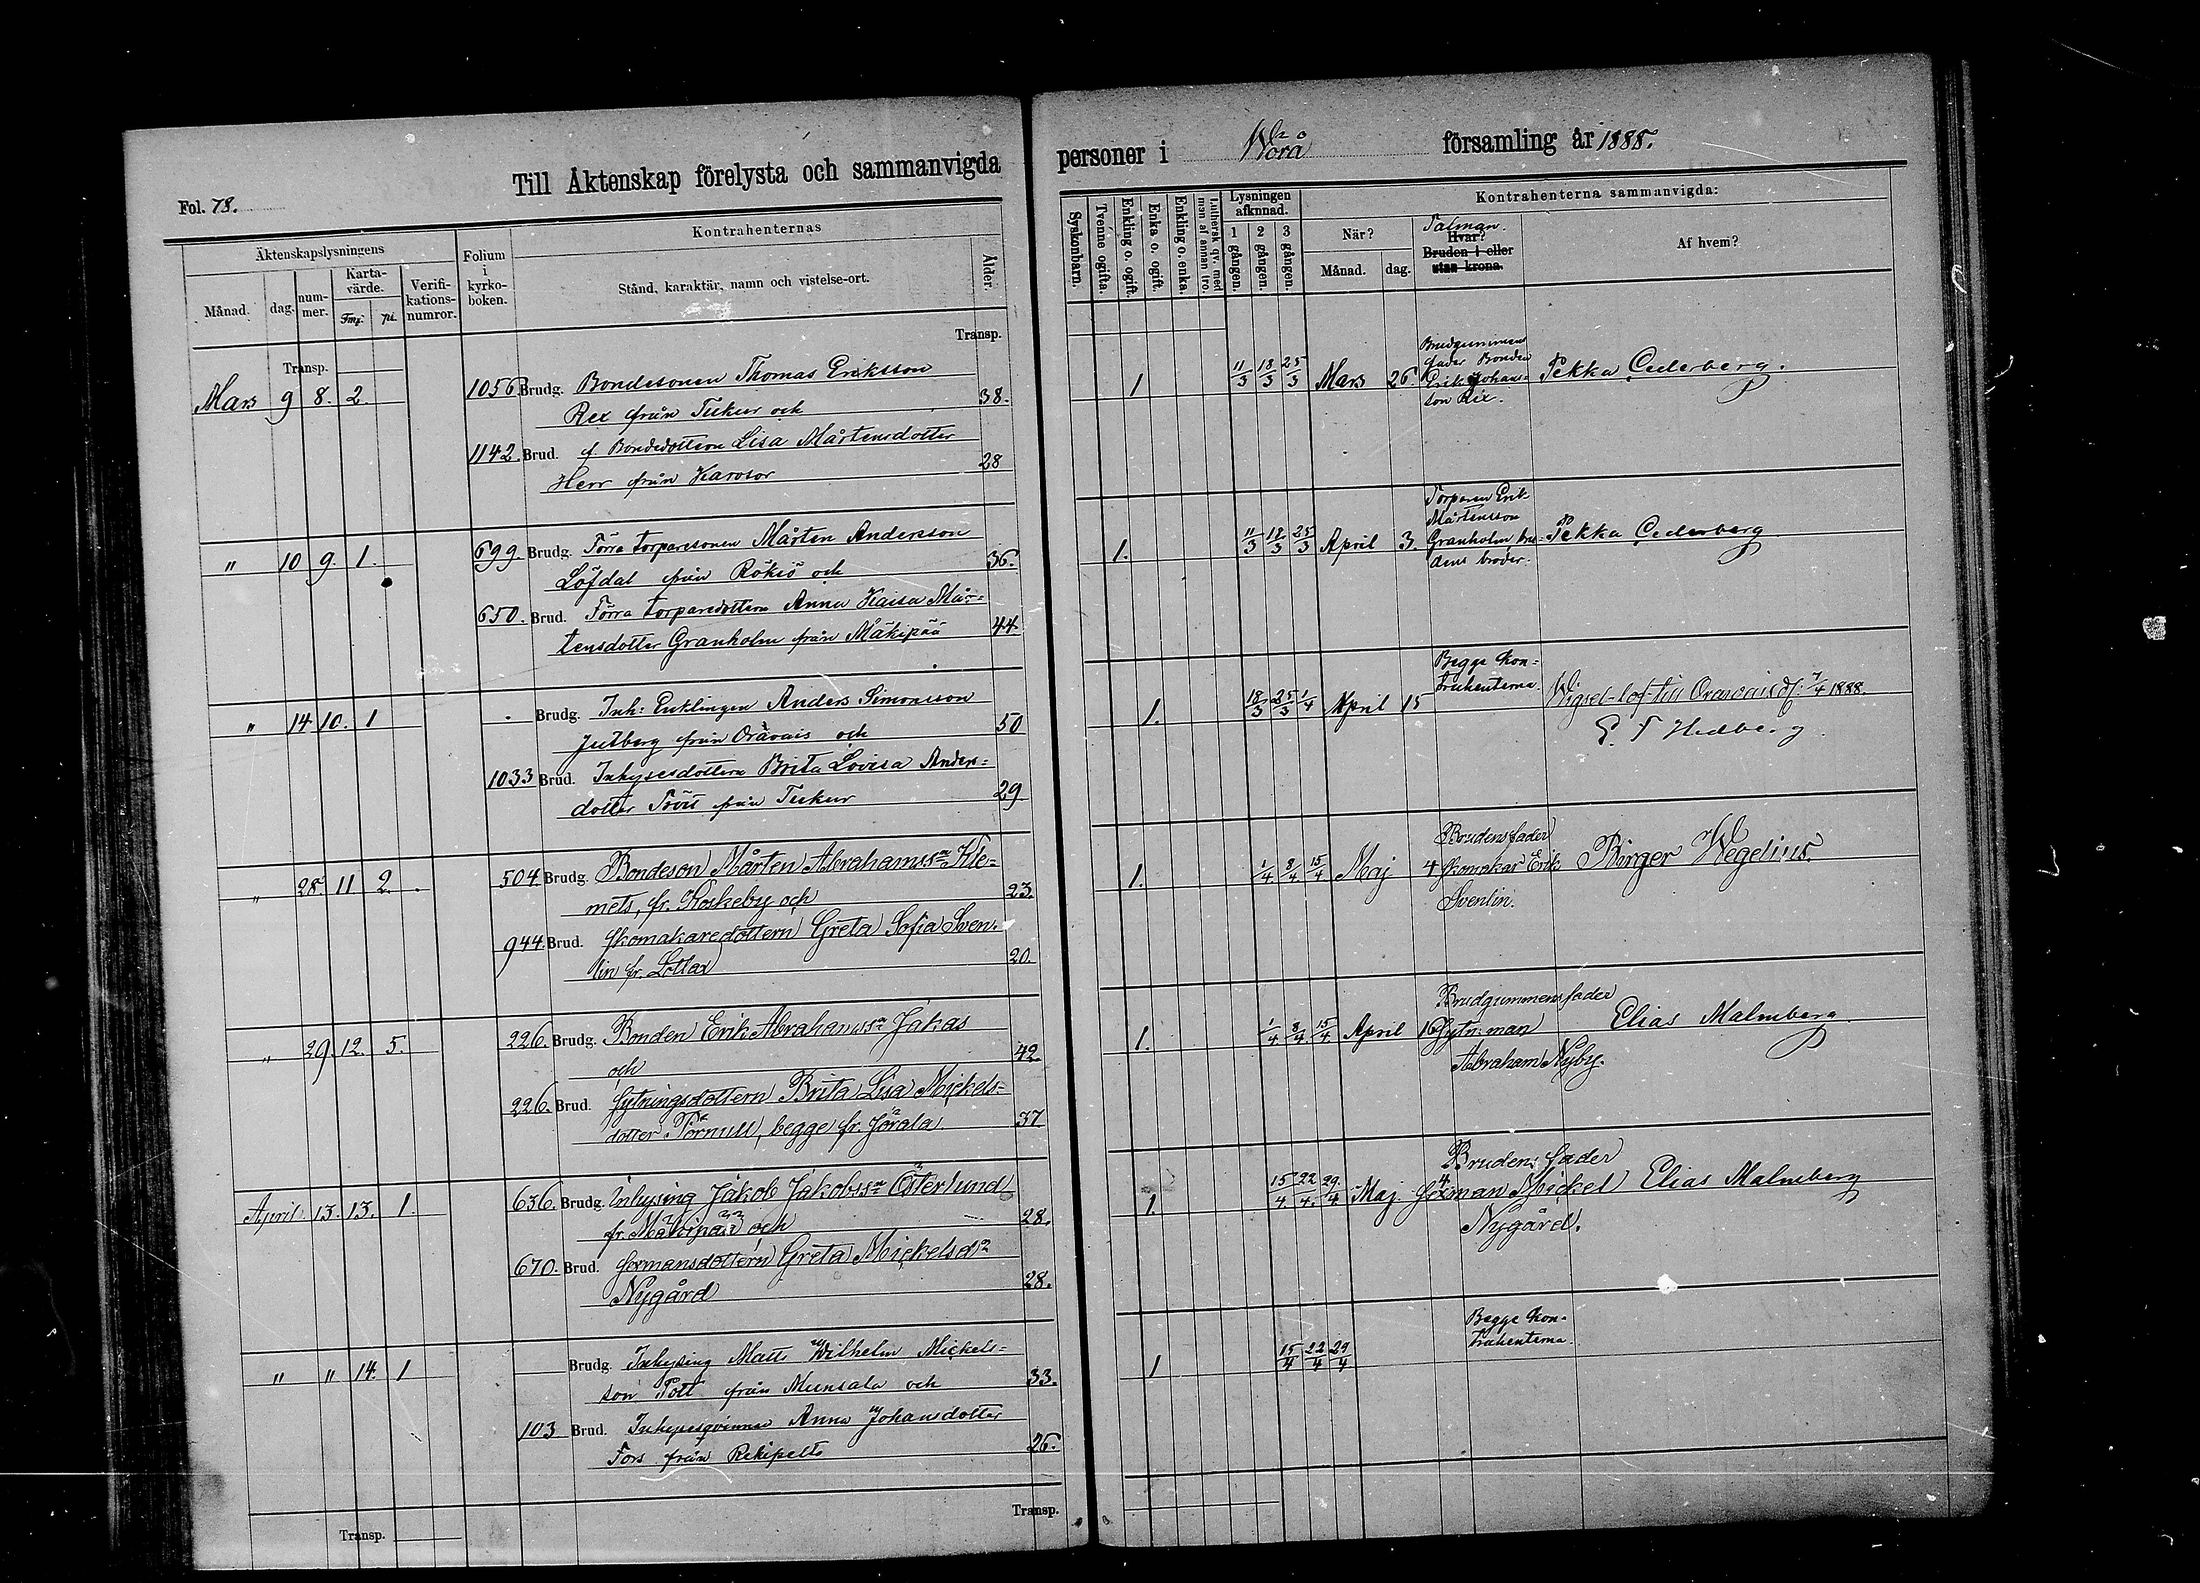 Till Äktenskap förelysta och sammanvigda
personer i Wörå församling år 1888.
Fol. 78.
Äktenskapslysningens
Månad.
dag.
num-
mer.
Karta-
värde.
Fmf.
pi.
Verifi-
kations-
numror.
Folium
i
kyrko-
boken.
Kontrahenternas
Stånd, karaktär, namn och vistelse-ort.
Ålder.
Syskonbarn.
Tvenne ogifta.
Enkling o. ogift.
Enka o. ogift.
Enkling o. enka.
Luthersk qv. med
man af annan tro.
Lysningen
afkunnad.
1 gången.
2 gången.
3 gången.
Kontrahenterna sammanvigda:
När?
Månad.
dag.
Talman.
Hvar?
Bruden i eller
utan krona.
Af hvem?
Transp.
Transp.
Mars 9 8. 2. 1056. Brudg. Bondesonen Thomas Eriksson
Rex från Tuckur och 38.
1142. Brud. f. Bondedottern Lisa Mårtensdotter
Herr från Karvsor 28
1 11/3 18/3 25/3 Mars 26
Brudgummens
fader Bonden
Erik Johans-
son Rex.
Pekka Cederberg.
" 10 9. 1. 699. Brudg. Förra torparesonen Mårten Andersson
Löfdal från Rökiö och 36.
650. Brud. Förra torparedottern Anna Kaisa Mår=
tensdotter Granholm från Mäkipää 44
1. 11/3 18/3 25/3 April 3.
Torparen Erik
Mårtensson
Granholm bru-
dens broder.
Pekka Cederberg
" 14. 10. 1 Brudg. Inh: Enklingen Anders Simonsson
Jutberg från Oravais och 50
1033 Brud. Inhysesdottern Brita Lovisa Anders=
dotter från Tuckur 29
1. 18/3 25/3 1/4 April 15
Begge kon=
trahenterna.
Vigsel-lof till Oravais d. 7/4 1888.
E. T Hedberg.
" 28. 11 2. 504. Brudg. Bondeson Mårten Abrahamssn Kle=
mets, fr. Koskeby och 23.
944. Brud. Skomakaredottern Greta Sofia Sven=
lin fr. Lottax 20.
1. 1/4 8/4 15/4 Maj 4
Brudens fader
Skomakar Erik
Svenlin.
Birger Wegelius.
" 29. 12. 5. 226. Brudg. Bonden Erik Abrahamssn Jakas
och 42
226. Brud. Sytningsdottern Brita Lisa Mickels=
dotter Pörnull, begge fr. Jörala 37
1. 1/4 8/4 15/4 April 16
Brudgummens fader
Sytn: man
Abraham Nyby.
Elias Malmberg
April. 13. 13. 1. 636. Brudg. Inhysing Jakob Jakobssn Österlund
fr. Mäkipää och 28.
670. Brud. Sexmansdottern Greta Mickelsdr
Nygård 28.
1. 15/4 22/4 29/4 Maj. 4
Brudens fader
Sexman Mickel
Nygård.
Elias Malmberg
" " 14. 1 Brudg. Inhysing Matts Wilhelm Mickels=
son Tott från Munsala och 33.
103 Brud. Inhysesqvinnan Anna Johansdotter
Fors från Rekipelto 26.
1 15/4 22/4 29/4
Begge kon-
trahenterna.
Transp.
Transp.